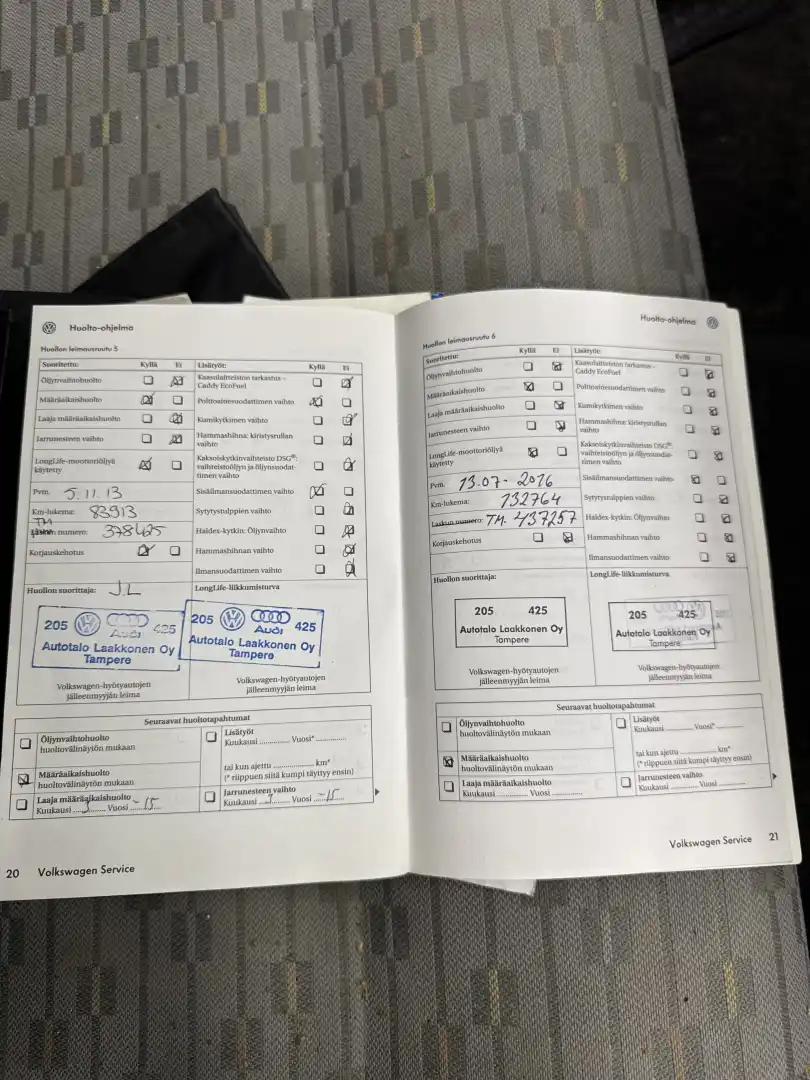 Huolto-ohjelma
Huollon leimausruutu 5
Suoritettu: Kyllä Ei
Öljynvaihtohuolto
Määräaikaishuolto
Laaja määräaikaishuolto
Jarrunesteen vaihto
LongLife-moottoriöljyä
käytetty
Pvm. 5.11.13
Km-lukema: 83913
TM
numero: 378425
Korjauskehotus
Lisätyöt: Kyllä Ei
Kaasulaitteiston tarkastus –
Caddy EcoFuel
Polttoainesuodattimen vaihto
Kumikytkimen vaihto
Hammashihna: kiristysrullan
vaihto
Kaksoiskytkinvaihteisto DSG®:
vaihteistoöljyn ja öljynsuodat-
timen vaihto
Sisäilmansuodattimen vaihto
Sytytystulppien vaihto
Haldex-kytkin: Öljynvaihto
Hammashihnan vaihto
Ilmansuodattimen vaihto
Huollon suorittaja: J.L
LongLife-liikkumisturva
205 Audi 425
Autotalo Laakkonen Oy
Tampere
205 Audi 425
Autotalo Laakkonen Oy
Tampere
Volkswagen-hyötyautojen
jälleenmyyjän leima
Volkswagen-hyötyautojen
jälleenmyyjän leima
Seuraavat huoltotapahtumat
Öljynvaihtohuolto
huoltovälinäytön mukaan
Määräaikaishuolto
huoltovälinäytön mukaan
Laaja määräaikaishuolto
Kuukausi 3 Vuosi -15
Lisätyöt
Kuukausi .............. Vuosi* ..............
tai kun ajettu .................. km*
(* riippuen siitä kumpi täyttyy ensin)
Jarrunesteen vaihto
Kuukausi 3 Vuosi -15
20 Volkswagen Service
Huolto-ohjelma
Huollon leimausruutu 6
Suoritettu: Kyllä Ei
Öljynvaihtohuolto
Määräaikaishuolto
Laaja määräaikaishuolto
Jarrunesteen vaihto
LongLife-moottoriöljyä
käytetty
Pvm. 13.07-2016
Km-lukema: 132764
Laskun numero: TM. 437257
Korjauskehotus
Lisätyöt: Kyllä Ei
Kaasulaitteiston tarkastus –
Caddy EcoFuel
Polttoainesuodattimen vaihto
Kumikytkimen vaihto
Hammashihna: kiristysrullan
vaihto
Kaksoiskytkinvaihteisto DSG®:
vaihteistoöljyn ja öljynsuodat-
timen vaihto
Sisäilmansuodattimen vaihto
Sytytystulppien vaihto
Haldex-kytkin: Öljynvaihto
Hammashihnan vaihto
Ilmansuodattimen vaihto
Huollon suorittaja:
LongLife-liikkumisturva
205 425
Autotalo Laakkonen Oy
Tampere
205 425
Autotalo Laakkonen Oy
Tampere
Volkswagen-hyötyautojen
jälleenmyyjän leima
Volkswagen-hyötyautojen
jälleenmyyjän leima
Seuraavat huoltotapahtumat
Öljynvaihtohuolto
huoltovälinäytön mukaan
Määräaikaishuolto
huoltovälinäytön mukaan
Laaja määräaikaishuolto
Kuukausi .............. Vuosi ..............
Lisätyöt
Kuukausi .............. Vuosi* ..............
tai kun ajettu .................. km*
(* riippuen siitä kumpi täyttyy ensin)
Jarrunesteen vaihto
Kuukausi .............. Vuosi ..............
Volkswagen Service 21